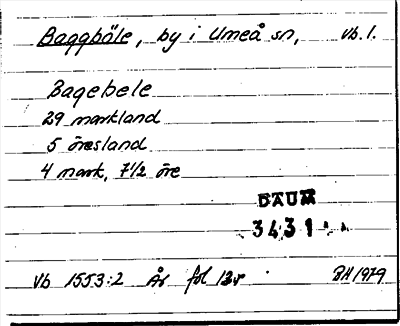 Baggböle, by i Umeå sn, Vb. l.
Bagebele
29 markland
5 öresland
4 mark, 7 1/2 öre
DAUM
3431
Vb 1553:2 År fol 12v BH 1979